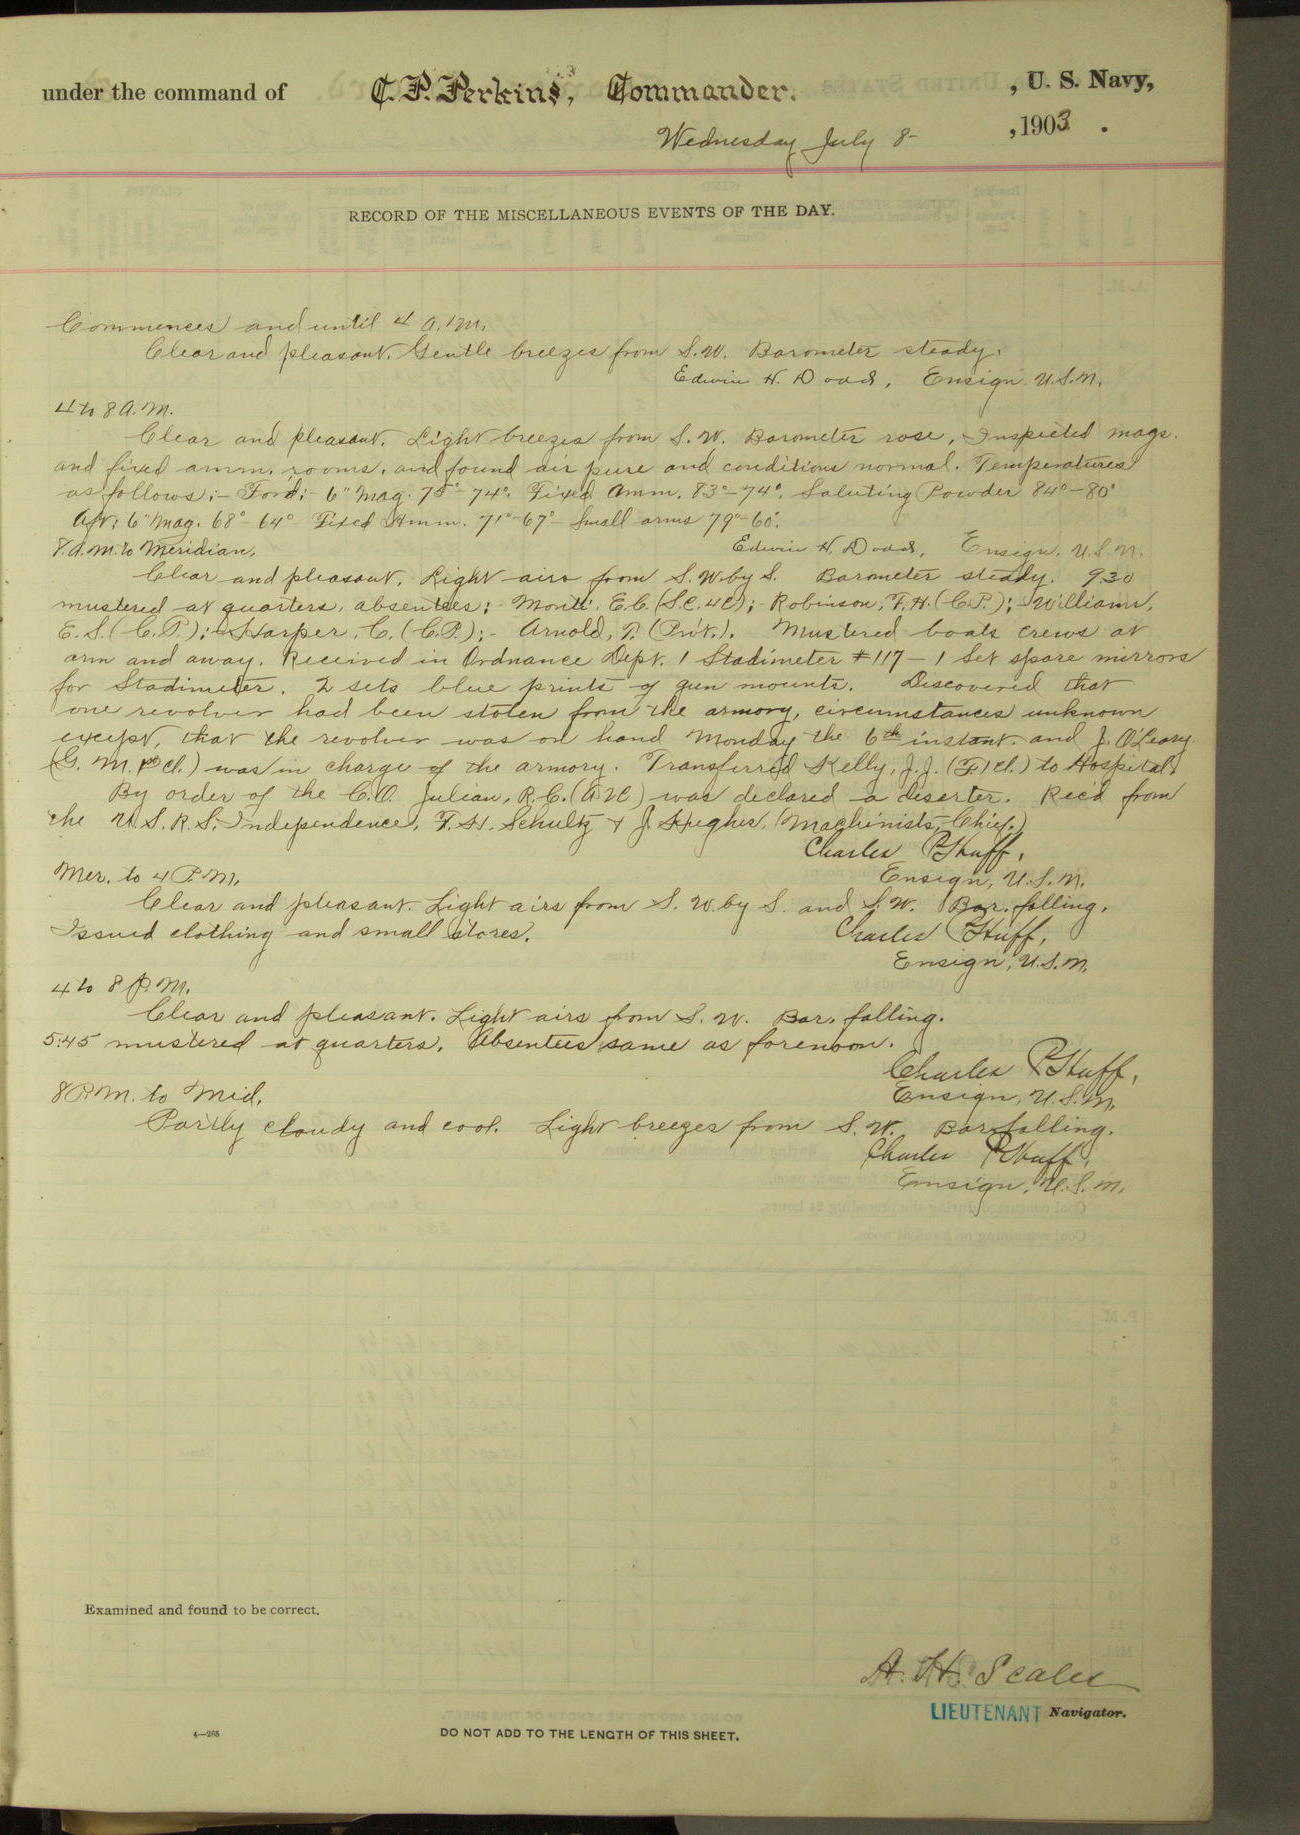 under the command of C. P. Perkins, Commander. , U. S. Navy,
Wednesday July 8- , 1903 .
RECORD OF THE MISCELLANEOUS EVENTS OF THE DAY.
Commences and until 4 A.M.
Clear and pleasant. Gentle breezes from S.W. Barometer steady.
Edwin H. Dodd, Ensign U.S.N.
4 to 8 A.M.
Clear and pleasant. Light breezes from S.W. Barometer rose. Inspected mags.
and fixed amm. rooms, and found air pure and conditions normal. Temperatures
as follows:- For'd:- 6" Mag. 75°-74°. Fixed Amm. 83°-74°. Saluting Powder 84°-80°
Aft: 6" Mag. 68°-64° Fixed Amm. 71°-67° Small arms 79°-60°.
8 A.M. to Meridian. Edwin H. Dodd, Ensign. U.S.N.
Clear and pleasant. Light airs from S.W. by S. Barometer steady. 9.30
mustered at quarters, absentees:- E.C. (S.C. 4C);- Robinson, F.H. (C.P.);- Williams,
E.S. (C.P.);- Harper, C. (C.P.);- Arnold, T. (Pvt.). Mustered boats crews at
arm and away. Received in Ordnance Dept. 1 Stadimeter #117 - 1 Set spare mirrors
for Stadimeter. 2 sets blue prints of gun mounts. Discovered that
one revolver had been stolen from the armory, circumstances unknown
except, that the revolver was on hand Monday the 6th instant. and J. O'Leary
(G. M. 1st Cl.) was in charge of the armory. Transferred Kelly, J.J. (F1Cl.) to Hospital.
By order of the C.O. Julian, R.C. (A2C) was declared a deserter. Rec'd from
the U.S.R.S. Independence, F.H. Schultz + J. Hughes, (Machinists, Chief.)
Charles P. Huff,
Mer. to 4 P.M. Ensign, U.S.N.
Clear and pleasant. Light airs from S.W. by S. and S.W. Bar. falling.
Issued clothing and small stores. Charles P. Huff,
Ensign, U.S.N.
4 to 8 P.M.
Clear and pleasant. Light airs from S.W. Bar. falling.
5:45 mustered at quarters. Absentees same as forenoon.
Charles P. Huff,
8 P.M. to Mid. Ensign, U.S.N.
Partly cloudy and cool. Light breezes from S.W. Bar. falling.
Charles P. Huff,
Ensign, U.S.N.
Examined and found to be correct.
A. H. Scales
LIEUTENANT Navigator.
4—265 DO NOT ADD TO THE LENGTH OF THIS SHEET.